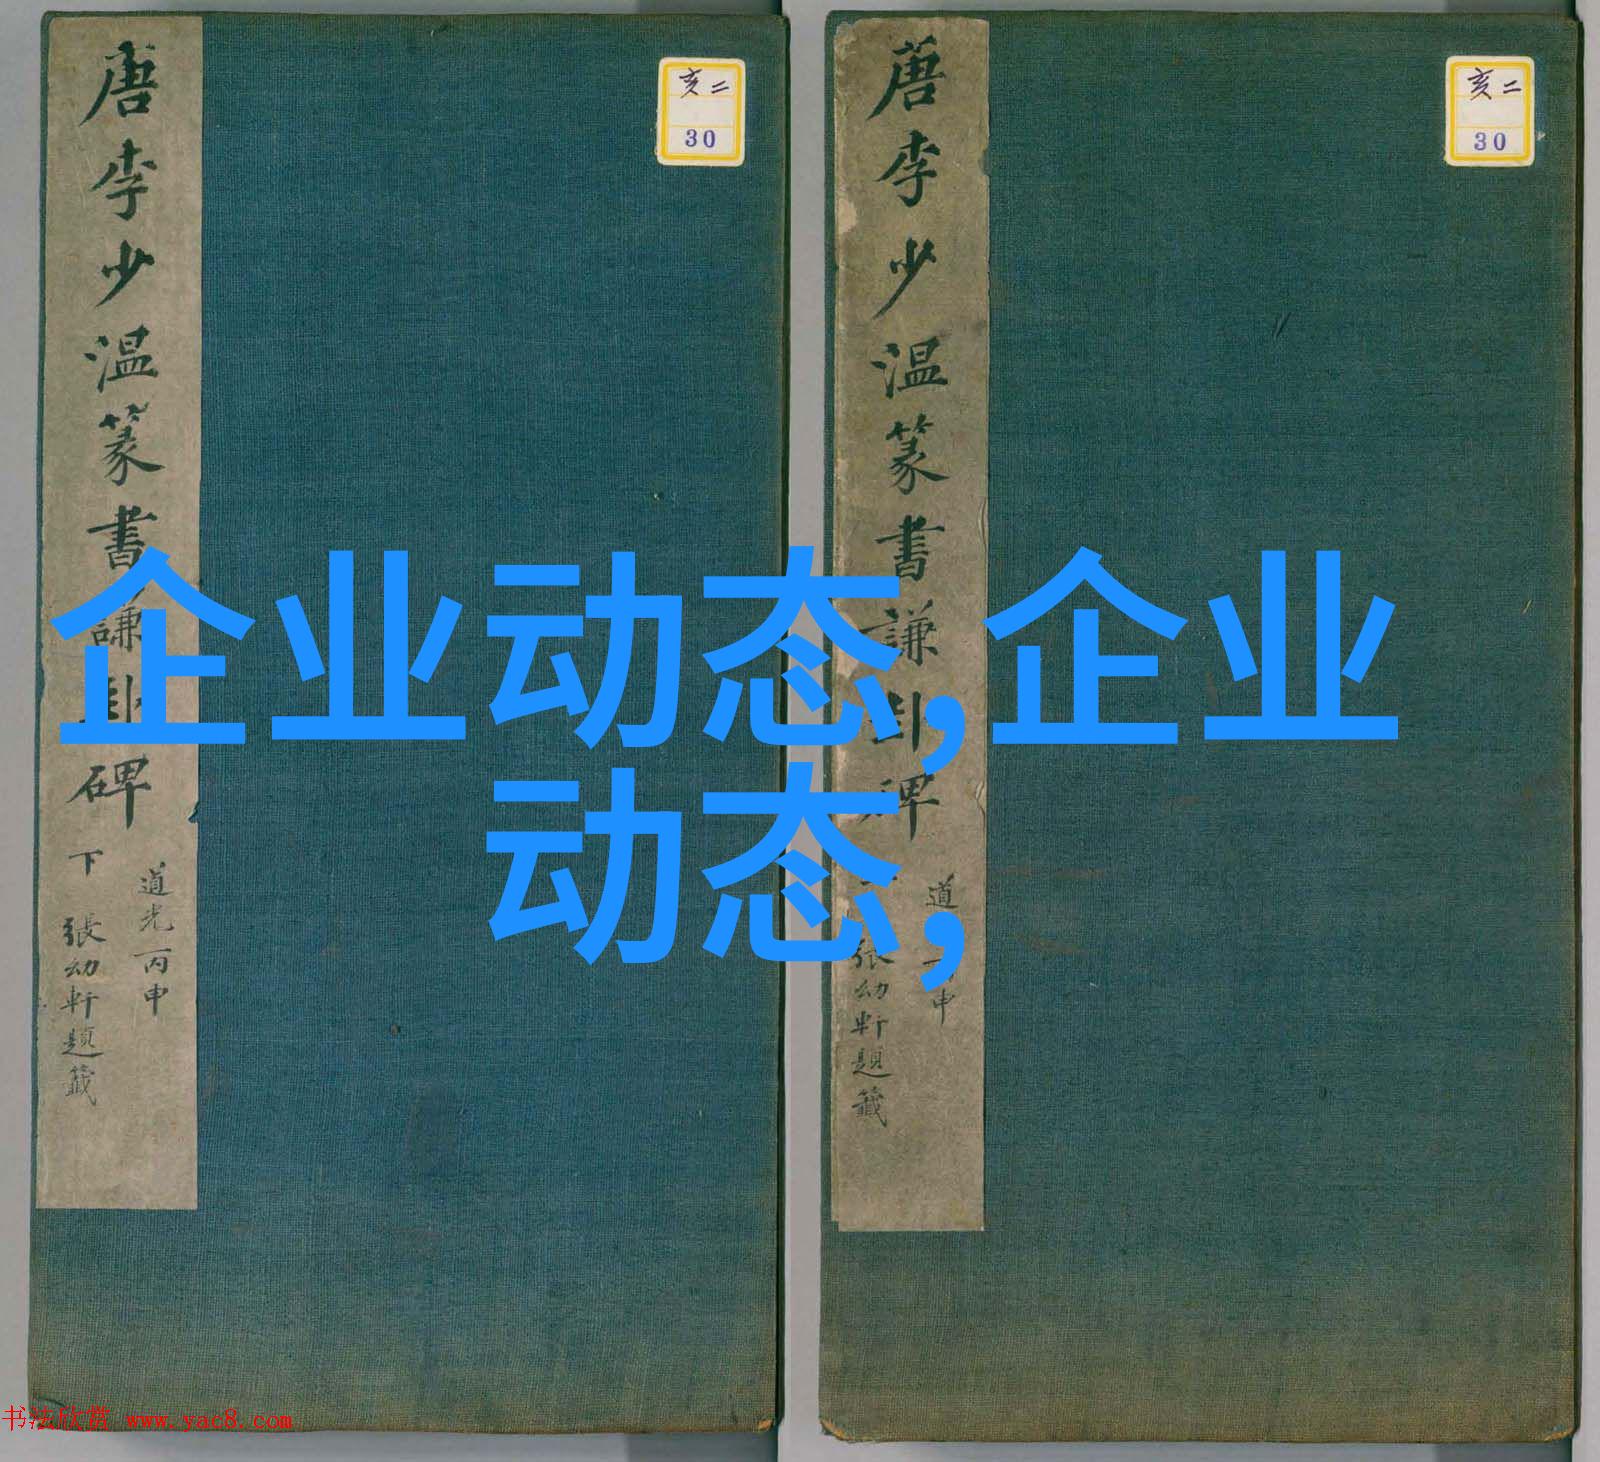 唐李少温篆書謙卦碑
下 張幼軒題籤
道光丙申
亥二
30
唐李少温篆書謙卦碑
張幼軒題籤
亥二
30
企业动态,企业
动态,
书法欣赏 www.yac8.com